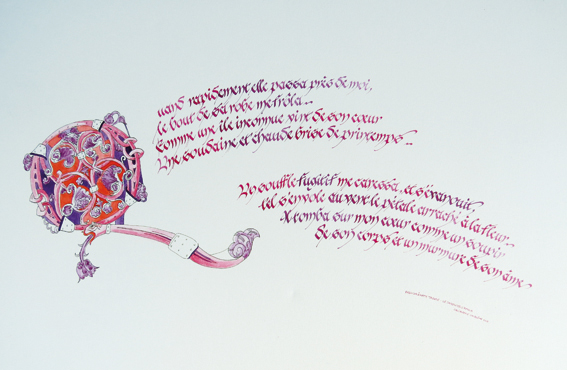 Quand rapidement elle passa près de moi,
le bout de sa robe me frôla...
Comme une île inconnue vint de son cœur
Une soudaine et chaude brise de printemps..
Un souffle fugitif me caressa, et s'évanouit,
tel s'envole au vent le pétale arraché à la fleur..
Il tomba sur mon cœur comme un soupir
de son corps et un murmure de son âme